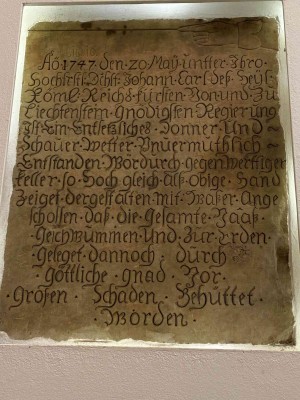 Aō 1747 den 20 May unter Ihro
Hochfürstl Dchlt Johann Carl des Heyl
Röml Reichs fürsten Von und zu
Liechtenstein gnödigsten Regierung
Ist Ein Entsetzliches Donner Und
Schauer Wetter Vnuermuthlich
Entstanden Wordurch gegenwertiger
Keller so Hoch gleich alß obige Hand
Zeiget dergestalten mit Waßer Ange
schoßen daß die Gesamte Vaaß
geschwummen Und Zur Erden
geleget dannoch durch
göttliche gnad Vor
großen Schaden Behüttet
Worden